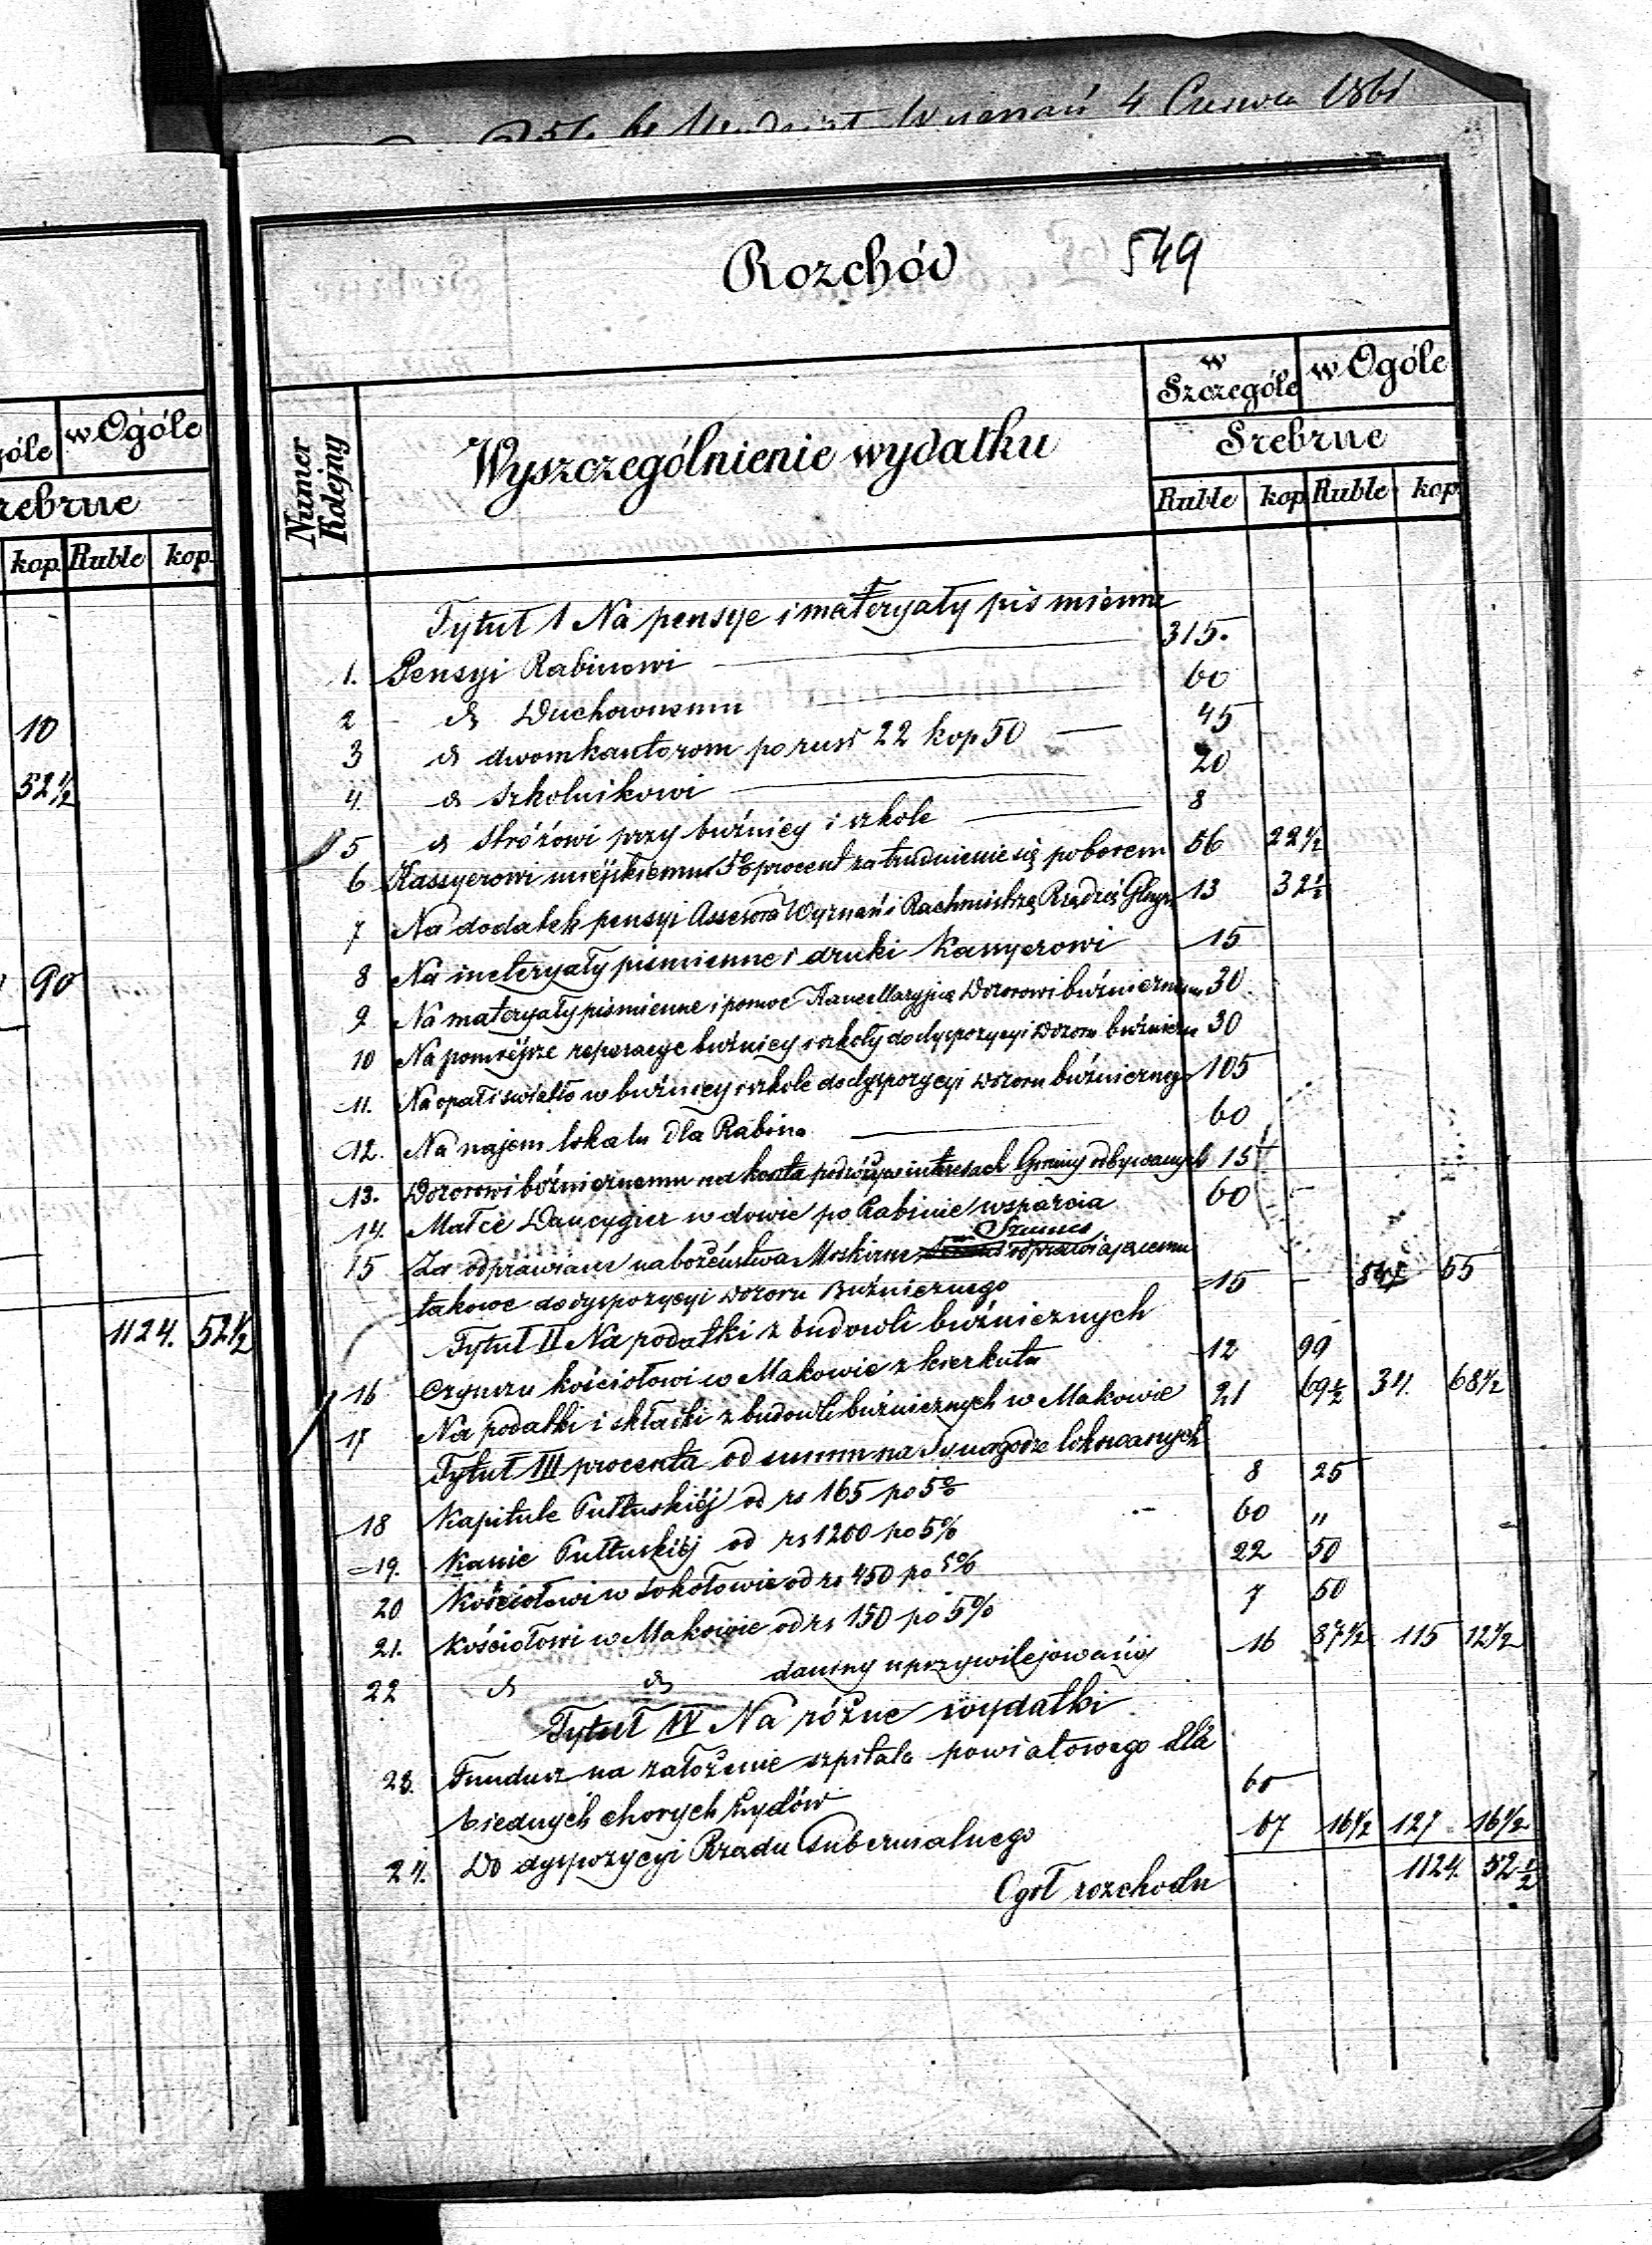 4 Czerwca 1861
Rozchód 549
góle w Ogóle
rebrne
kop. Ruble kop.
10
52 1/2
90
1124. 52 1/2
Numer Kolejny
Wyszczególnienie wydatku
w Szczególe w Ogóle
Srebrne
Ruble kop. Ruble kop.
Tytuł 1 Na pensye i materyały piśmienne
1. Pensyi Rabinowi 315.
2 d Duchownemu 60
3 d dwom kantorom po rusr 22 kop 50 45
4. d szkolnikowi 20
5 d stróżowi przy bużnicy i szkole 8
6 Kassyerowi miejskiemu 5% procent za trudnienie się poborem 56 22 1/2
7 Na dodatek pensyi Assesora Wyznań i Rachmistrza 13 32 1/2
8 Na materyały piśmienne i druki Kassyerowi 15
9 Na materyały piśmienne i pomoc Kancellaryjną Dozorowi bużniczemu 30
10 Na pomniejsze reperacye bużnicy i szkoły do dyspozycyi Dozoru bużnicz 30
11. Na opał i światło w bużnicy i szkole do dyspozycyi Dozoru bużnicznego 105
12. Na najem lokalu dla Rabina 60
13. Dozorowi bóżnicznemu na koszta podróży w interesach Gminy odbywanych 15
14. Małce Dancygier wdowie po Rabinie wsparcia 60 -
Szames
15 Za odprawianie nabożeństwa odprawiającemu
takowe do dyspozycyi Dozoru Bużnicznego 15 - 847 55
Tytuł II Na podatki z budowli bużnicznych
16 Czynszu kościołowi w Makowie z kierkuta 12 99
17 Na podatki i składki z budowli bużnicznych w Makowie 21 69 1/2 34. 68 1/2
Tytuł III procenta od summ na Synagodze lokowanych
18 Kapitule Pułtuskiéj od rs 165 po 5% 8 25
19. Pułtuskiéj od rs 1200 po 5% 60 "
20 Kościołowi w Sokołowie od rs 450 po 5% 22 50
21. Kościołowi w Makowie od rs 150 po 5% 7 50
22 d d daniny uprzywilejowanéj 16 87 1/2 115 12 1/2
Tytuł IV Na różne wydatki
23. Fundusz na założenie szpitala powiatowego dla
biednych chorych Żydów 60
24. Do dyspozycyi Rządu Gubernialnego 67 16 1/2 127 16 1/2
Ogół rozchodu 1124. 52 1/2